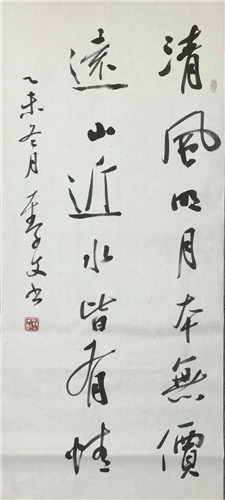 清風明月本無價
遠山近水皆有情
乙未冬月 李文書